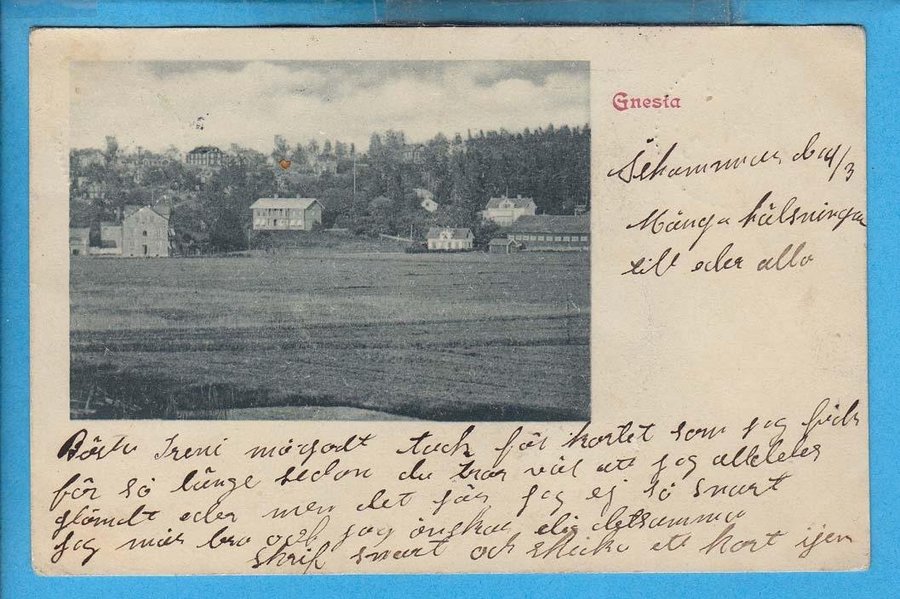 Gnesta
den 14/3
Många hälsningar
till eder alla
Bästa Ireni tack för kortet som jag fick
för så länge sedan du tror väl att jag alldeles
glömdt eder men det gör jag ej så snart
jag mår bra och jag önskar dig detsamma
skrif snart och skicka ett kort ijen